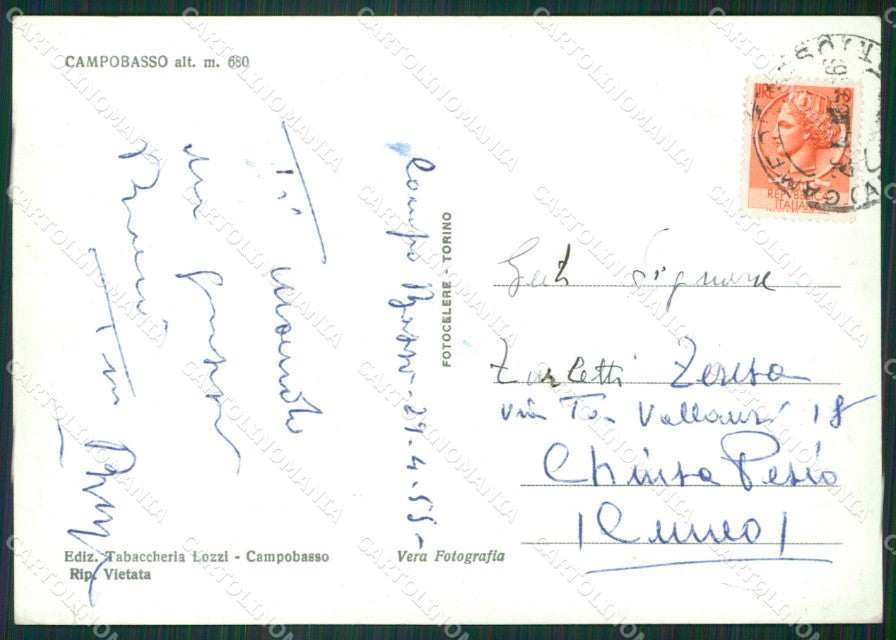 CAMPOBASSO alt. m. 680
Campo Basso - 29.4.55 -
Ti mando
un grosso
Tuo
FOTOCELERE - TORINO
LIRE
REPUBBLICA
ITALIANA
Gent Signora
Zarletti Teresa
via T. Vallauri 18
Chiusa Pesio
(Cuneo)
Ediz. Tabaccheria Lozzi - Campobasso
Rip. Vietata
Vera Fotografia
CARTOLINOMANIA